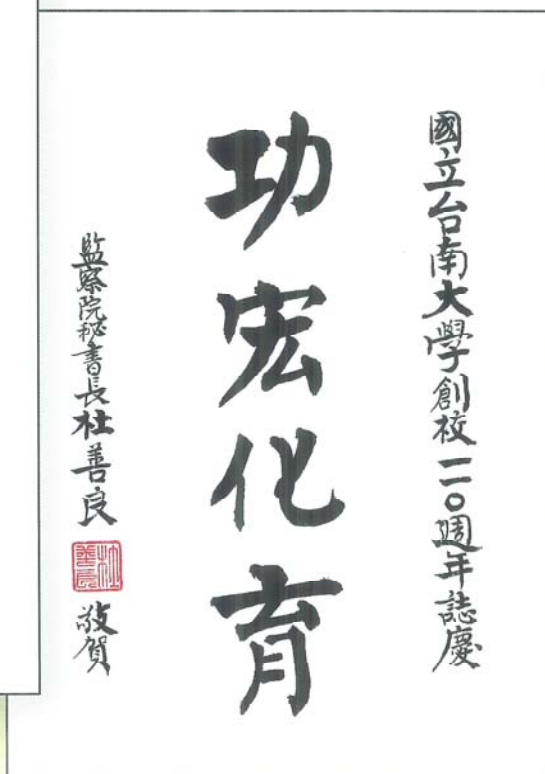 國立台南大學創校一一〇週年誌慶
功宏化育
監察院秘書長杜善良
杜善良
敬賀